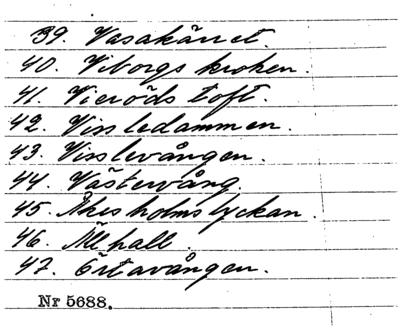 39. Vasakärret.
40. Viborgs kroken.
41. Vieröds toft.
42. Vissledammen.
43. Visslevången.
44. Västervång.
45. Åkesholms lyckan.
46. hall.
47. Örtavången.
Nr 5688.